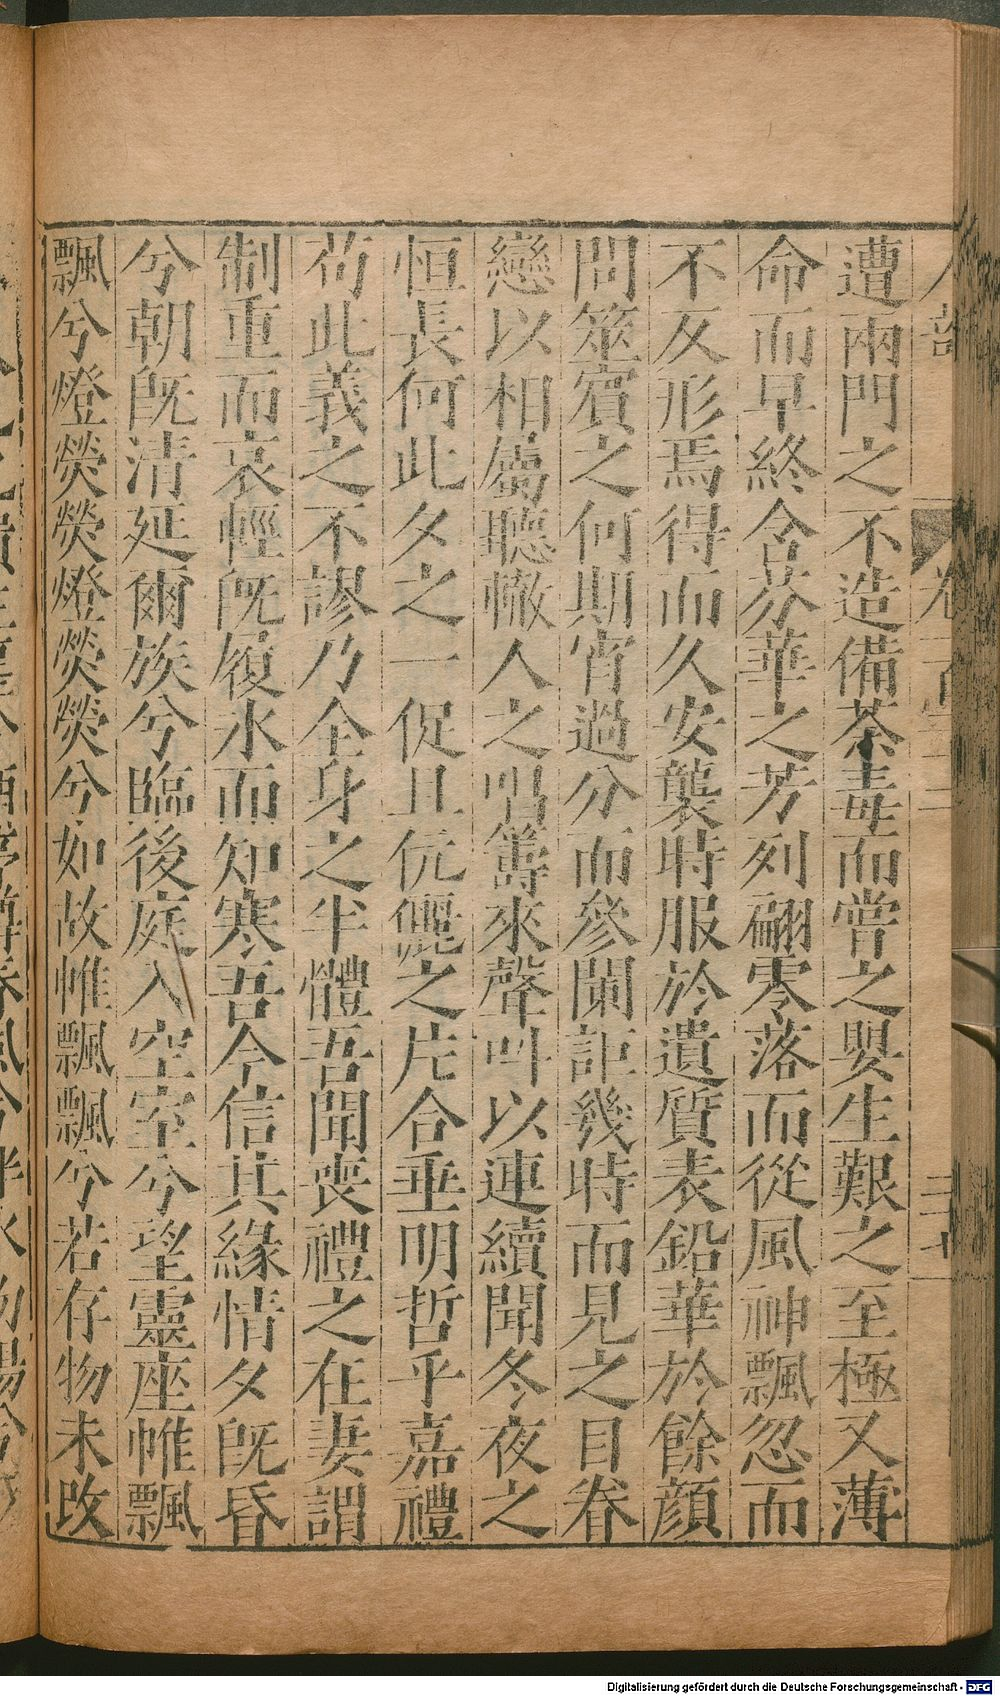 遭兩門之不造備荼毒而嘗之嬰生艱之至極又薄
命而早終含芬華之芳列翩零落而從風神飄忽而
不反形焉得而久安襲時服於遺質表鉛華於餘顔
問筮賓之何期宵過分而參闌詎幾時而見之目眷
戀以相屬聽轍人之唱籌來聲叫以連續聞冬夜之
恒長何此夕之一促且伉儷之片合垂明哲乎嘉禮
苟此義之不謬乃全身之半體吾聞喪禮之在妻謂
制重而哀輕旣履氷而知寒吾今信其緣情夕旣昏
兮朝旣清延爾族兮臨後庭入空室兮望靈座帷飄
飄兮燈熒熒燈熒熒兮如故帷飄飄兮若存物未改
Digitalisierung gefördert durch die Deutsche Forschungsgemeinschaft - DFG